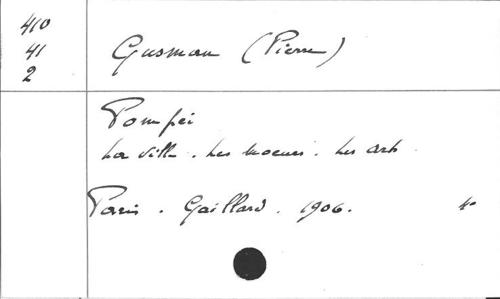 410
41
2
Gusman (Pierre)
Pompéi
La ville. Les moeurs. Les arts
Paris. Gaillard. 1906. 4°